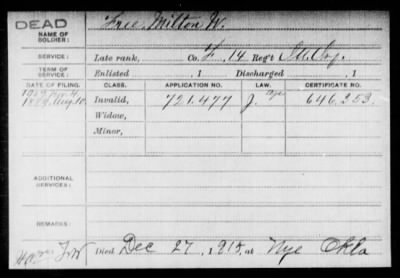 DEAD
NAME OF SOLDIER: Free, Milton W.
SERVICE: Late rank, Co. F, 14 Reg't Ill. Inf.
TERM OF SERVICE: Enlisted , 1 Discharged , 1
DATE OF FILING. CLASS. APPLICATION NO. LAW. CERTIFICATE NO.
1889 Aug 10 Invalid, 721.477 J. 646.253
Widow,
Minor,
ADDITIONAL SERVICES:
REMARKS:
Died Dec 27, 1915, at Nye Okla